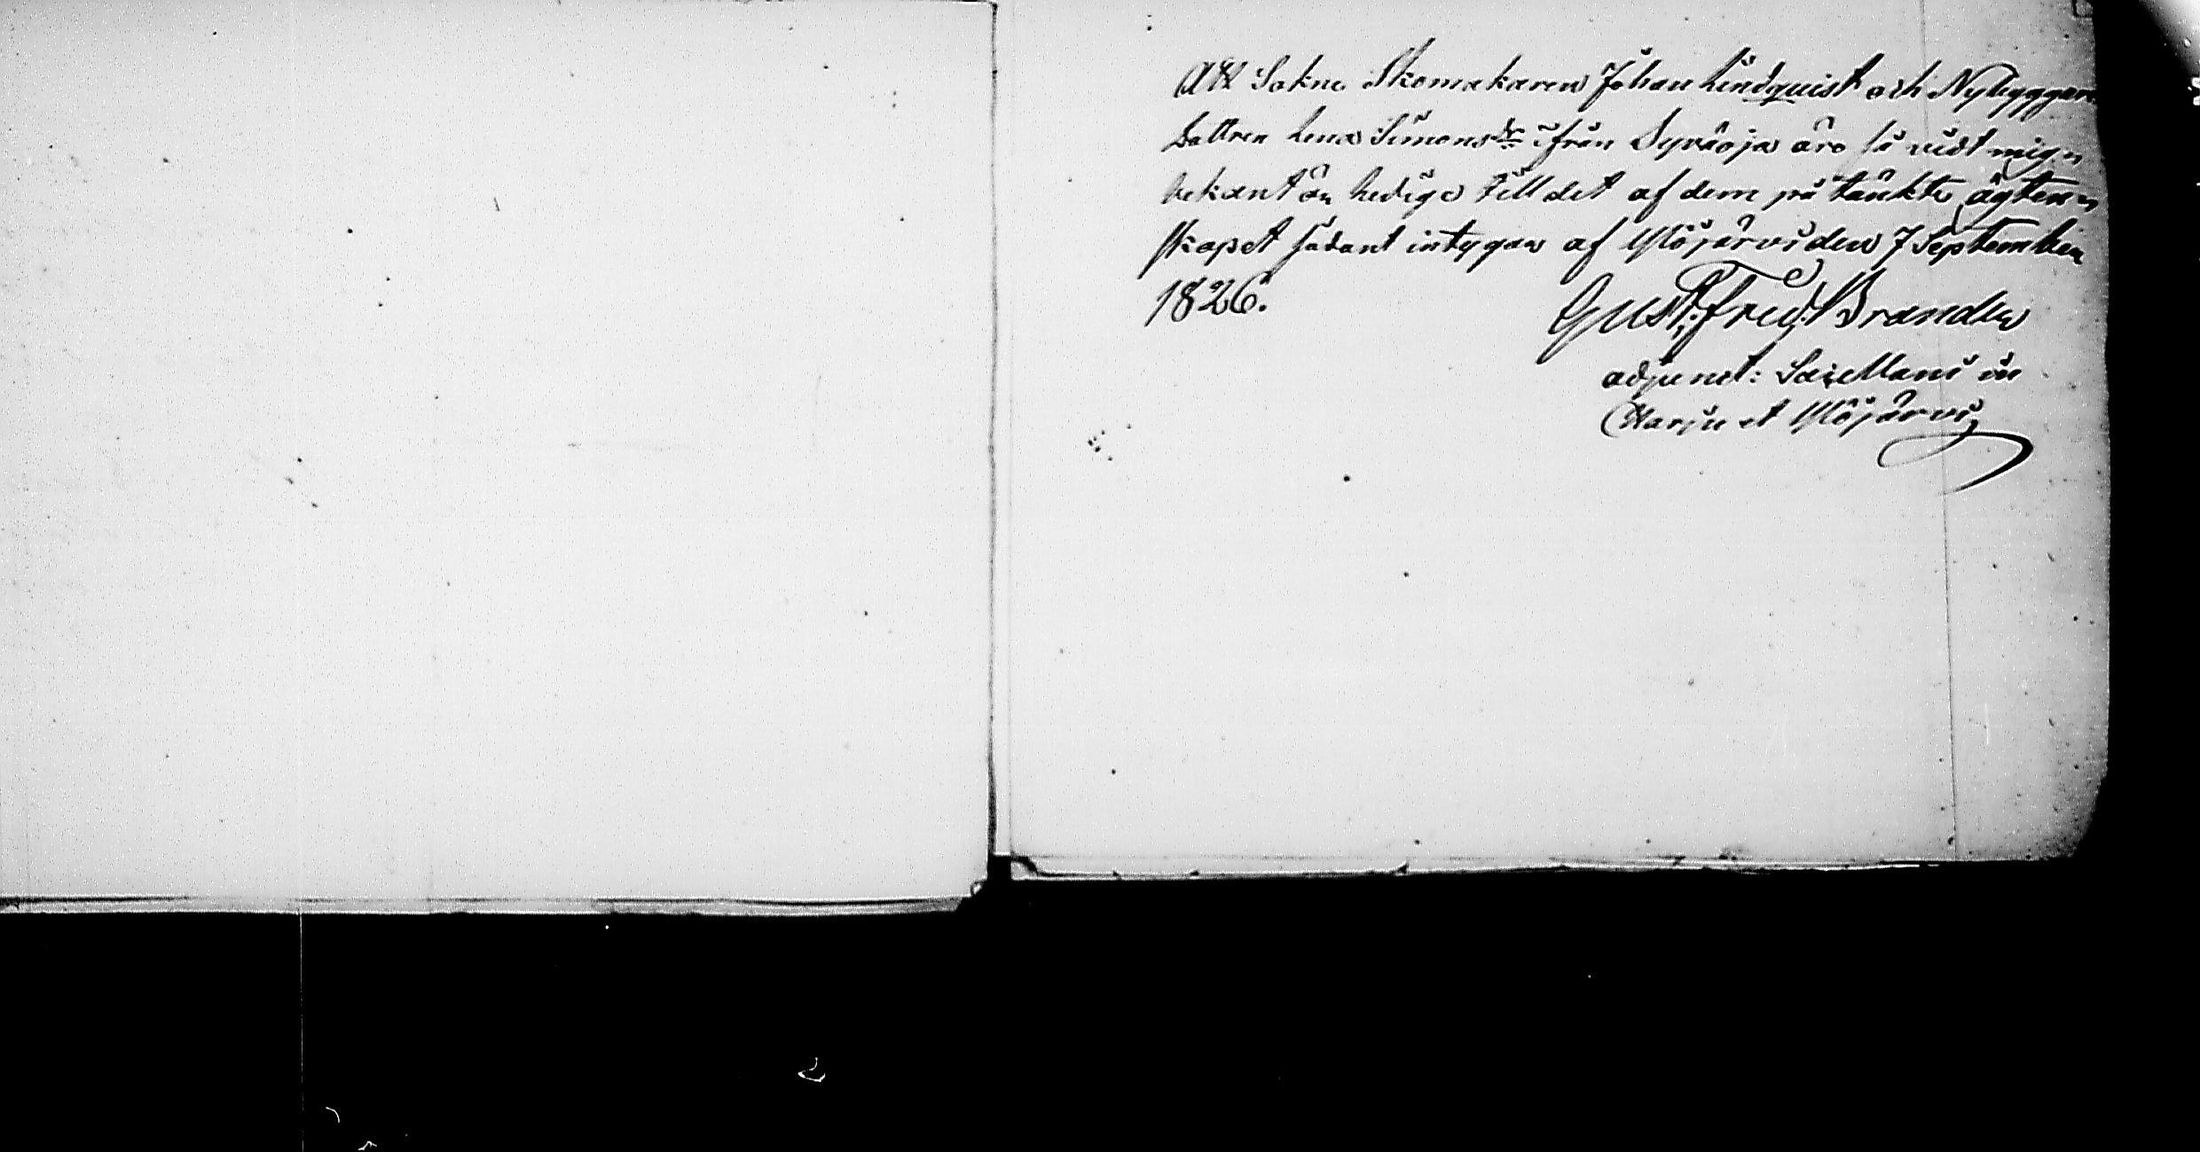 Att Sokne Skomakaren Johan Lindquist och Nybyggare
Dottren Lena Simonsdr ifrån Syväoja äro så vidt mig
bekant än ledige till det af dem på tänkte ägten=
skapet sådant intygas af Ylöjärvi den 7 September
1826.
Gust: Fred: Brander
adjunct: Sacellani in
Harju et Ylöjärvi